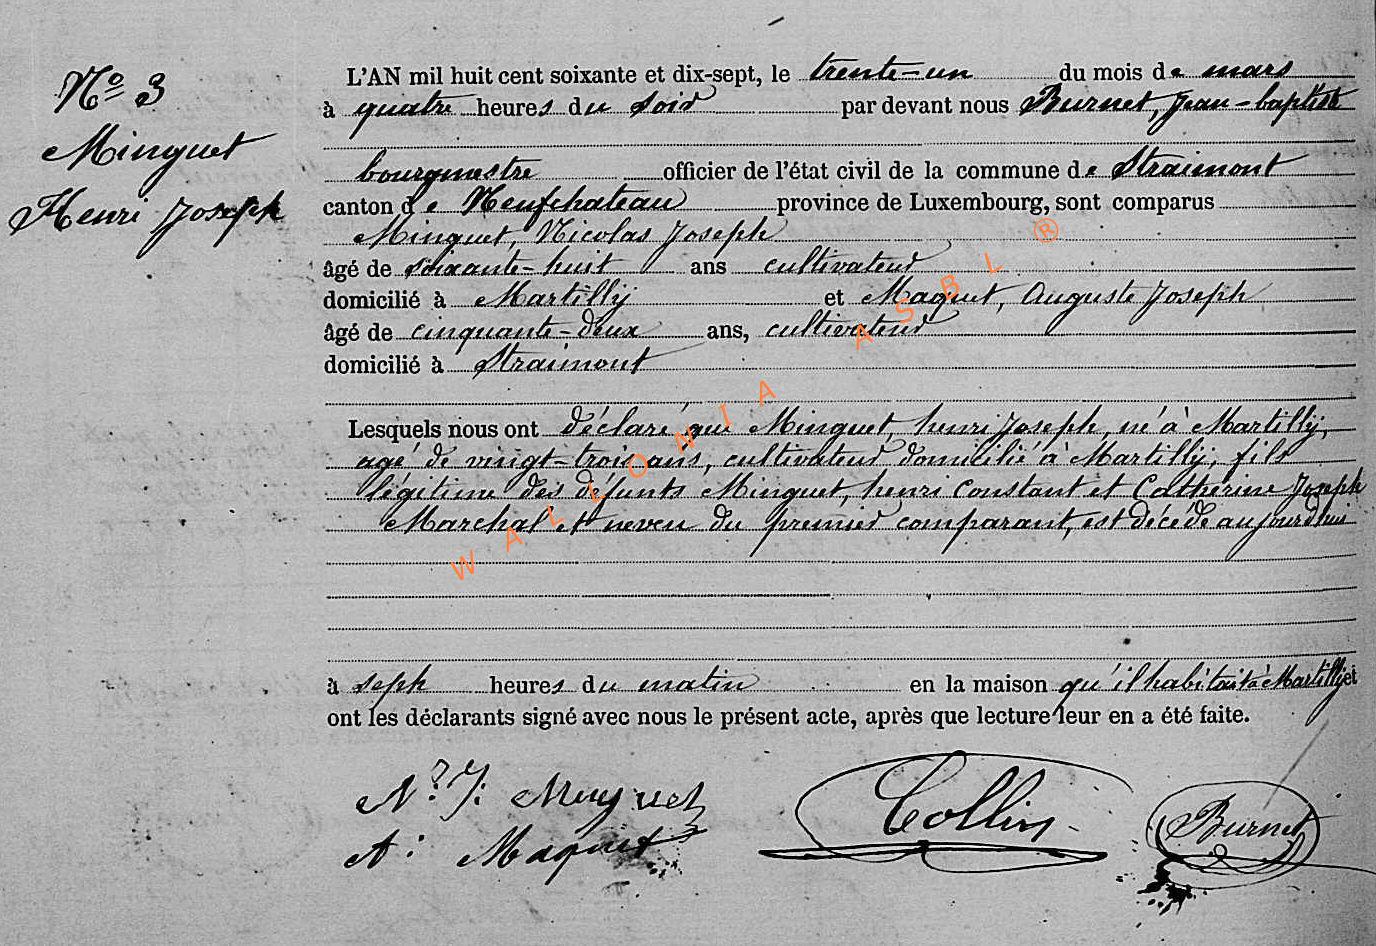 Nº 3
Minguet
Henri Joseph
L'AN mil huit cent soixante et dix-sept, le trente-un du mois de mars
à quatre heures du soir par devant nous Burnet, Jean-baptiste
bourgmestre officier de l'état civil de la commune de Straimont
canton de Neufchateau province de Luxembourg, sont comparus
Minguet, Nicolas Joseph
âgé de soixante-huit ans cultivateur
domicilié à Martilly et Maquet, Auguste Joseph
âgé de cinquante-deux ans, cultivateur
domicilié à Straimont
Lesquels nous ont déclaré que Minguet, henri Joseph, né à Martilly,
agé de vingt-trois ans, cultivateur domicilié à Martilly, fils
légitime des défunts Minguet, henri Constant et Catherine Joseph
Marchal et neveu du premier comparant, est décédé aujourdhui
à seph heures du matin en la maison qu'il habitait à Martilly et
ont les déclarants signé avec nous le présent acte, après que lecture leur en a été faite.
N: J: Minguet
Collin
Burnet
A: Maquet
WALLONIA ASBL ®